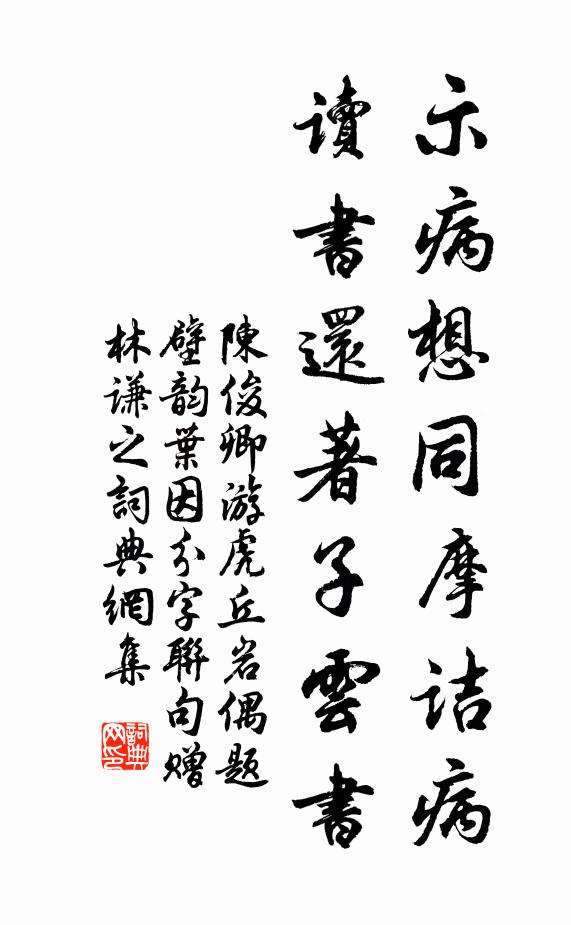 示病想同摩诘病
读書還著子雲書
陳俊卿游虎丘岩偶题
壁韵葉因分字聯句赠
林谦之詞典網集
詞典
网印